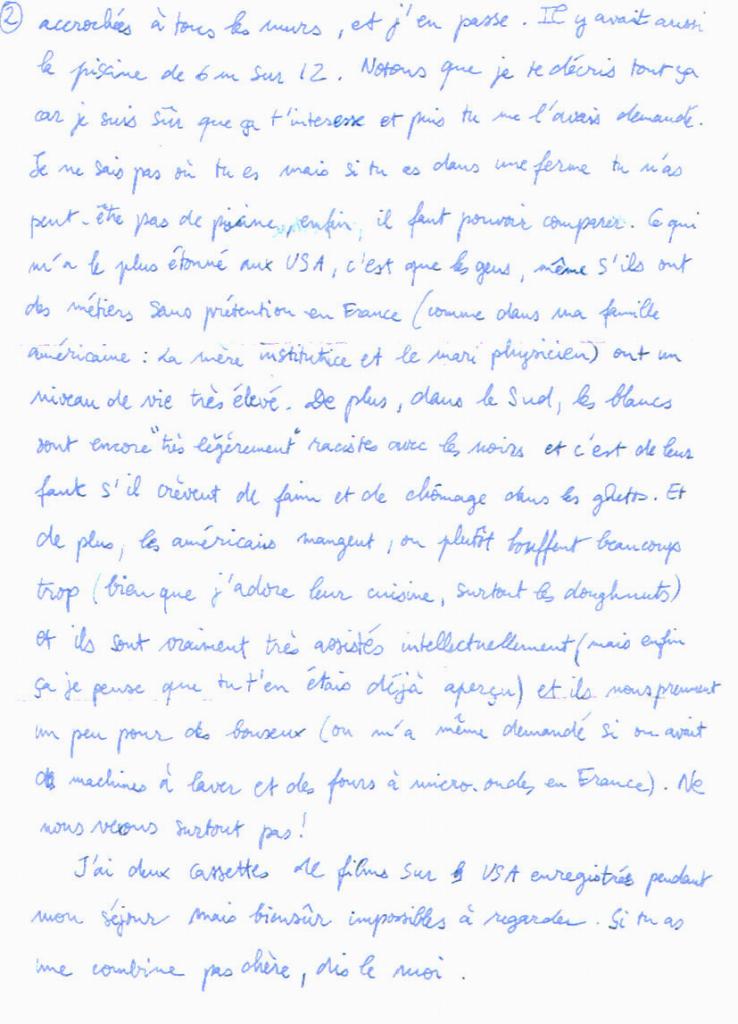 ② accrochées à tous les murs, et j'en passe. Il y avait aussi
la piscine de 6 m sur 12. Notons que je te décris tout ça
car je suis sûr que ça t'interesse et puis tu me l'avais demandé.
Je ne sais pas où tu es mais si tu es dans une ferme tu n'as
peut-être pas de piscine, enfin, il faut pouvoir comparer. Ce qui
m'a le plus étonné aux USA, c'est que les gens, même s'ils ont
des métiers sans prétention en France (comme dans ma famille
américaine : La mère institutice et le mari physicien) ont un
niveau de vie très élevé. De plus, dans le Sud, les blancs
sont encore "très légèrement" racistes avec les noirs et c'est de leur
faute s'il crèvent de faim et de chômage dans les ghetos. Et
de plus, les américains mangent, ou plutôt bouffent beaucoup
trop (bien que j'adore leur cuisine, surtout les doughnuts)
et ils sont vraiment très assistés intellectuellement (mais enfin
ça je pense que tu t'en étais déjà aperçu) et ils nous prennent
un peu pour des bouseux (on m'a même demandé si on avait
des machines à laver et des fours à micro-ondes en France). Ne
nous vexons surtout pas !
J'ai deux cassettes de films sur les USA enregistrés pendant
mon séjour mais biensûr impossibles à regarder. Si tu as
une combine pas chère, dis le moi.